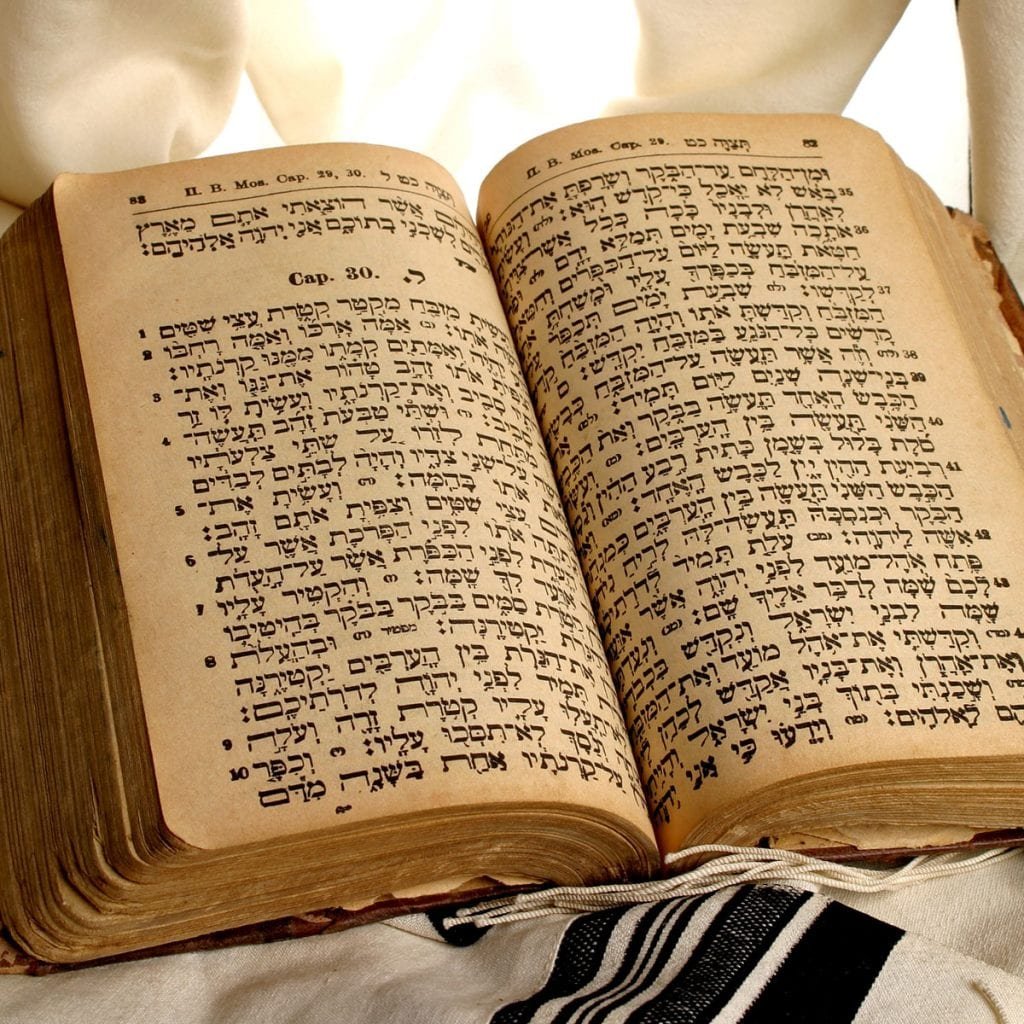 82 תְּצַוֶּה כט II. B. Mos. Cap. 29.
וּמִן־הַלֶּחֶם עַד־הַבֹּקֶר וְשָׂרַפְתָּ אֶת־
35 בָּאֵשׁ לֹא יֵאָכֵל כִּי־קֹדֶשׁ הוּא׃ (לה) וְעָשִׂיתָ
לְאַהֲרֹן וּלְבָנָיו כָּכָה כְּכֹל אֲשֶׁר
36 אֹתָכָה שִׁבְעַת יָמִים תְּמַלֵּא יָדָם׃ (לו) וּפַר
חַטָּאת תַּעֲשֶׂה לַיּוֹם עַל־הַכִּפֻּרִים וְחִטֵּאתָ
עַל־הַמִּזְבֵּחַ בְּכַפֶּרְךָ עָלָיו וּמָשַׁחְתָּ
37 לְקַדְּשׁוֹ׃ (לז) שִׁבְעַת יָמִים תְּכַפֵּר
הַמִּזְבֵּחַ וְקִדַּשְׁתָּ אֹתוֹ וְהָיָה הַמִּזְבֵּחַ
קָדָשִׁים כָּל־הַנֹּגֵעַ בַּמִּזְבֵּחַ יִקְדָּשׁ׃ ס
38 (לח) וְזֶה אֲשֶׁר תַּעֲשֶׂה עַל־הַמִּזְבֵּחַ כְּבָשִׂים
39 בְּנֵי־שָׁנָה שְׁנַיִם לַיּוֹם תָּמִיד׃ (לט)
הַכֶּבֶשׂ הָאֶחָד תַּעֲשֶׂה בַבֹּקֶר וְאֵת
40 הַשֵּׁנִי תַּעֲשֶׂה בֵּין הָעַרְבָּיִם׃ (מ)
סֹלֶת בָּלוּל בְּשֶׁמֶן כָּתִית רֶבַע הַהִין
41 רְבִיעִת הַהִין יָיִן לַכֶּבֶשׂ הָאֶחָד׃ (מא)
הַכֶּבֶשׂ הַשֵּׁנִי תַּעֲשֶׂה בֵּין הָעַרְבַּיִם
הַבֹּקֶר וּכְנִסְכָּהּ תַּעֲשֶׂה־לָּהּ לְרֵיחַ
42 אִשֶּׁה לַיהוָֹה׃ (מב) עֹלַת תָּמִיד לְדֹרֹתֵיכֶם
פֶּתַח אֹהֶל־מוֹעֵד לִפְנֵי יְהוָֹה אֲשֶׁר
43 לָכֶם שָׁמָּה לְדַבֵּר אֵלֶיךָ שָׁם׃ (מג)
שָׁמָּה לִבְנֵי יִשְׂרָאֵל וְנִקְדַּשׁ
(מד) וְקִדַּשְׁתִּי אֶת־אֹהֶל מוֹעֵד וְאֶת־הַמִּזְבֵּחַ
וְאֶת־אַהֲרֹן וְאֶת־בָּנָיו אֲקַדֵּשׁ לְכַהֵן
וְשָׁכַנְתִּי בְּתוֹךְ בְּנֵי יִשְׂרָאֵל
לֵאלֹהִים׃ (מו) וְיָדְעוּ כִּי אֲנִי
תְּצַוֶּה כט ל II. B. Mos. Cap. 29, 30. 83
אֲשֶׁר הוֹצֵאתִי אֹתָם מֵאֶרֶץ
לְשָׁכְנִי בְתוֹכָם אֲנִי יְהוָֹה אֱלֹהֵיהֶם׃
ל. Cap. 30.
מִזְבֵּחַ מִקְטַר קְטֹרֶת עֲצֵי שִׁטִּים 1
אֹתוֹ׃ (ב) אַמָּה אָרְכּוֹ וְאַמָּה רָחְבּוֹ 2
וְאַמָּתַיִם קֹמָתוֹ מִמֶּנּוּ קַרְנֹתָיו׃
אֹתוֹ זָהָב טָהוֹר אֶת־גַּגּוֹ וְאֶת־ 3
סָבִיב וְאֶת־קַרְנֹתָיו וְעָשִׂיתָ לּוֹ זֵר
סָבִיב׃ (ד) וּשְׁתֵּי טַבְּעֹת זָהָב תַּעֲשֶׂה־ 4
מִתַּחַת לְזֵרוֹ עַל שְׁתֵּי צַלְעֹתָיו
עַל־שְׁנֵי צִדָּיו וְהָיָה לְבָתִּים לְבַדִּים
אֹתוֹ בָּהֵמָּה׃ (ה) וְעָשִׂיתָ אֶת־ 5
עֲצֵי שִׁטִּים וְצִפִּיתָ אֹתָם זָהָב׃
אֹתוֹ לִפְנֵי הַפָּרֹכֶת אֲשֶׁר עַל־ 6
לִפְנֵי הַכַּפֹּרֶת אֲשֶׁר עַל־הָעֵדֻת
לְךָ שָׁמָּה׃ (ז) וְהִקְטִיר עָלָיו 7
קְטֹרֶת סַמִּים בַּבֹּקֶר בַּבֹּקֶר בְּהֵיטִיבוֹ
יַקְטִירֶנָּה׃ מפטיר (ח) וּבְהַעֲלֹת 8
אֶת־הַנֵּרֹת בֵּין הָעַרְבַּיִם יַקְטִירֶנָּה
תָּמִיד לִפְנֵי יְהוָֹה לְדֹרֹתֵיכֶם׃
תַעֲלוּ עָלָיו קְטֹרֶת זָרָה וְעֹלָה 9
וְנֵסֶךְ לֹא־תִסְּכוּ עָלָיו׃ (י) וְכִפֶּר 10
עַל־קַרְנֹתָיו אַחַת בַּשָּׁנָה מִדַּם